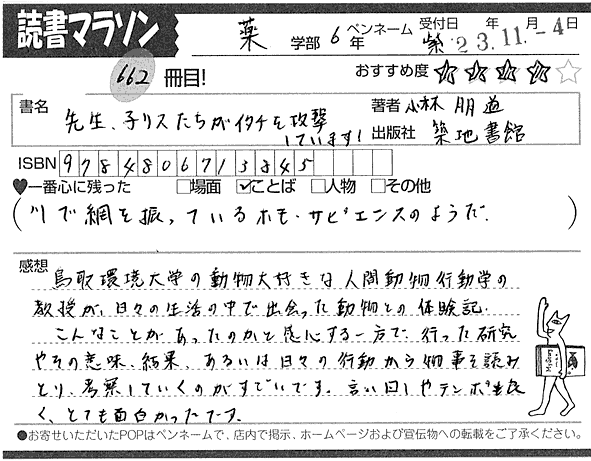 読書マラソン
薬 学部 6 年
ペンネーム 紫
受付日 年 月 日
'23.11.-4
662 冊目!
おすすめ度 ★★★★☆
書名 先生、子リスたちがイタチを攻撃しています!
著者 小林 朋道
出版社 築地書館
ISBN 9784806713845
♥一番心に残った □場面 ☑ことば □人物 □その他
(川で網を振っているホモ・サピエンスのようだ.)
感想 鳥取環境大学の動物大好きな人間動物行動学の
教授が、日々の生活の中で出会った動物との体験記.
こんなことがあったのかと感心する一方で、行った研究
やその意味、結果、あるいは日々の行動から物事を読み
とり、考察していくのがすごいです。言い回しやテンポも良
く、とても面白かったです。
●お寄せいただいたPOPはペンネームで、店内で掲示、ホームページおよび宣伝物への転載をご了承ください。